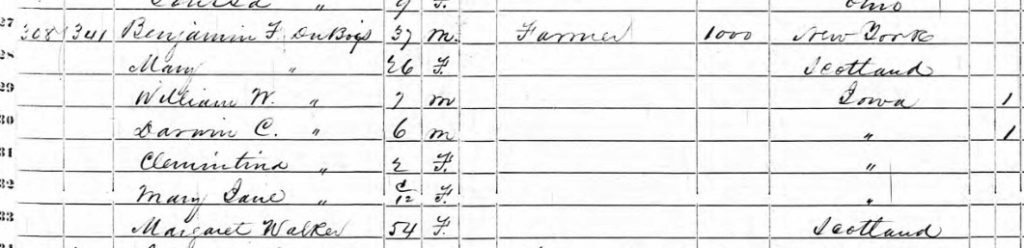 Ohio
27 308 341 Benjamin F. DuBois 37 M. Farmer 1000 New York
Mary " 26 F. Scotland
29 William W. " 7 M Iowa 1
30 Darwin C. " 6 M " 1
31 Clemintina " 2 F. "
32 Mary Jane " /12 F. "
33 Margaret Walker 54 F. Scotland